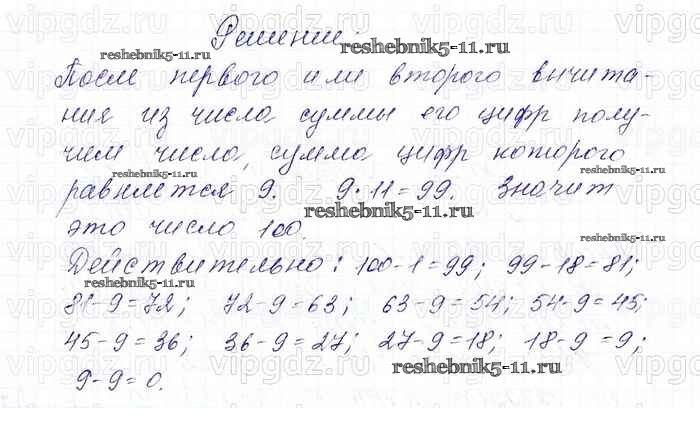 Решение.
После первого или второго вычита-
ния из числа суммы его цифр полу-
чим число, сумма цифр которого
равняется 9. 9·11=99. Значит
это число 100.
Действительно: 100-1=99; 99-18=81;
81-9=72; 72-9=63; 63-9=54; 54-9=45;
45-9=36; 36-9=27; 27-9=18; 18-9=9;
9-9=0.
reshebnik5-11.ru
reshebnik5-11.ru
reshebnik5-11.ru
reshebnik5-11.ru
reshebnik5-11.ru
reshebnik5-11.ru
reshebnik5-11.ru
reshebnik5-11.ru
vipgdz.ru